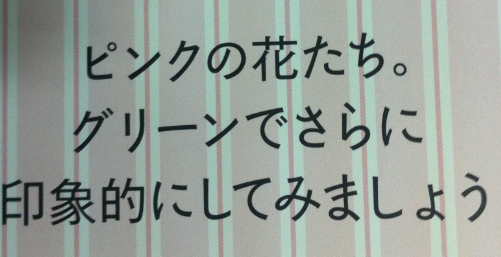 ピンクの花たち。
グリーンでさらに
印象的にしてみましょう